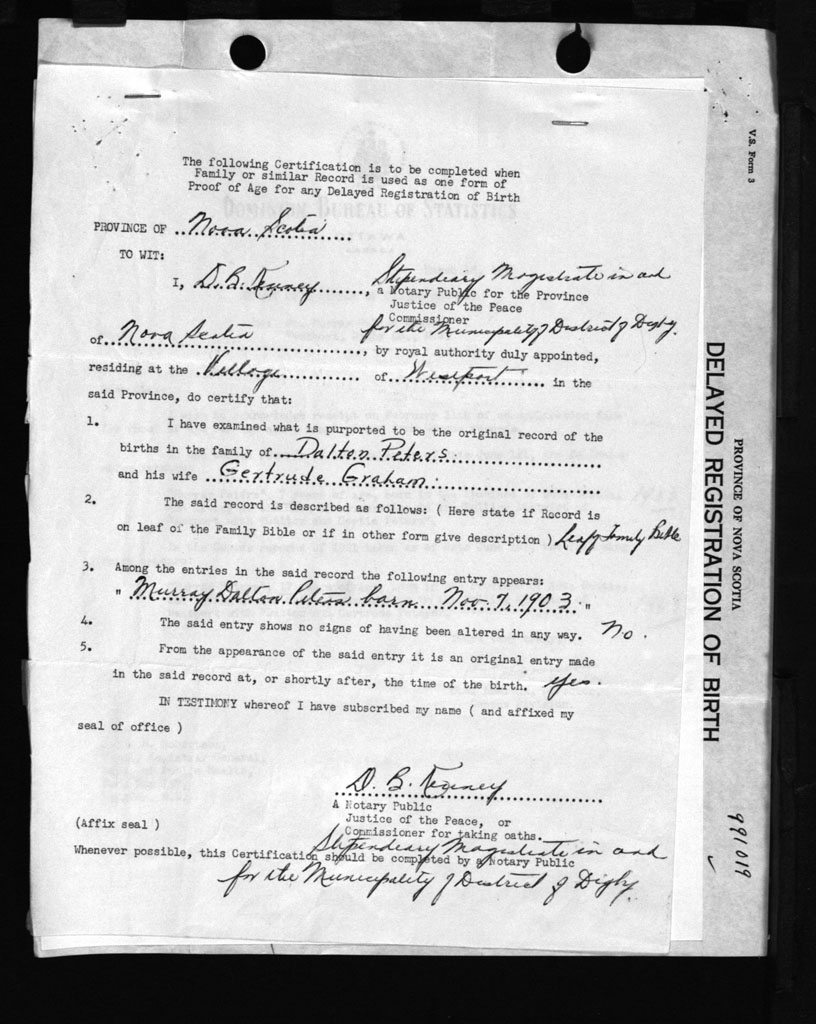 The following Certification is to be completed when
Family or similar Record is used as one form of
Proof of Age for any Delayed Registration of Birth
DOMINION BUREAU OF STATISTICS
OTTAWA
PROVINCE OF Nova Scotia
TO WIT:
I, D. B. Kenney, Stipendiary Magistrate in and
a Notary Public for the Province
Justice of the Peace
Commissioner
for the Municipality of District of Digby.
of Nova Scotia, by royal authority duly appointed,
residing at the Village of Westport in the
said Province, do certify that:
1. I have examined what is purported to be the original record of the
births in the family of Dalton Peters
and his wife Gertrude Graham.
2. The said record is described as follows: ( Here state if Record is
on leaf of the Family Bible or if in other form give description ) Leaf of Family Bible
3. Among the entries in the said record the following entry appears:
" Murray Dalton Peters born Nov. 7, 1903 "
4. The said entry shows no signs of having been altered in any way. No.
5. From the appearance of the said entry it is an original entry made
in the said record at, or shortly after, the time of the birth. yes.
IN TESTIMONY whereof I have subscribed my name ( and affixed my
seal of office )
D. B. Kenney
A Notary Public
Justice of the Peace, or
Commissioner for taking oaths.
(Affix seal )
Stipendiary Magistrate in and
Whenever possible, this Certification should be completed by a Notary Public
for the Municipality of District of Digby.
V.S. Form 3
PROVINCE OF NOVA SCOTIA
DELAYED REGISTRATION OF BIRTH
991019